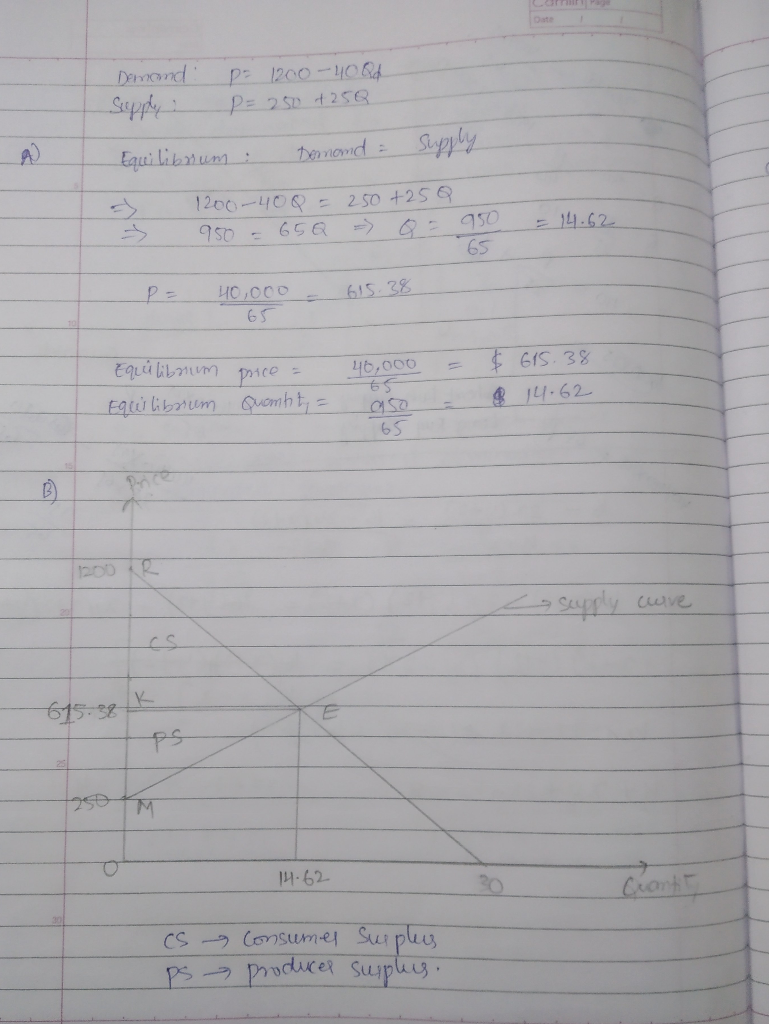 Date / /
Demand: P= 1200-40Qd
Supply: P= 250 +25Q
A) Equilibrium: Demand = Supply
⇒ 1200-40Q = 250 +25Q
⇒ 950 = 65Q ⇒ Q = 950/65 = 14.62
P = 40,000/65 = 615.38
Equilibrium price = 40,000/65 = $ 615.38
Equilibrium Quantity = 950/65 = 14.62
B) Price
1200 R
→ Supply curve
CS
615.38 K E
PS
250 M
O 14.62 30 Quantity
CS → Consumer Surplus
PS → producer surplus.